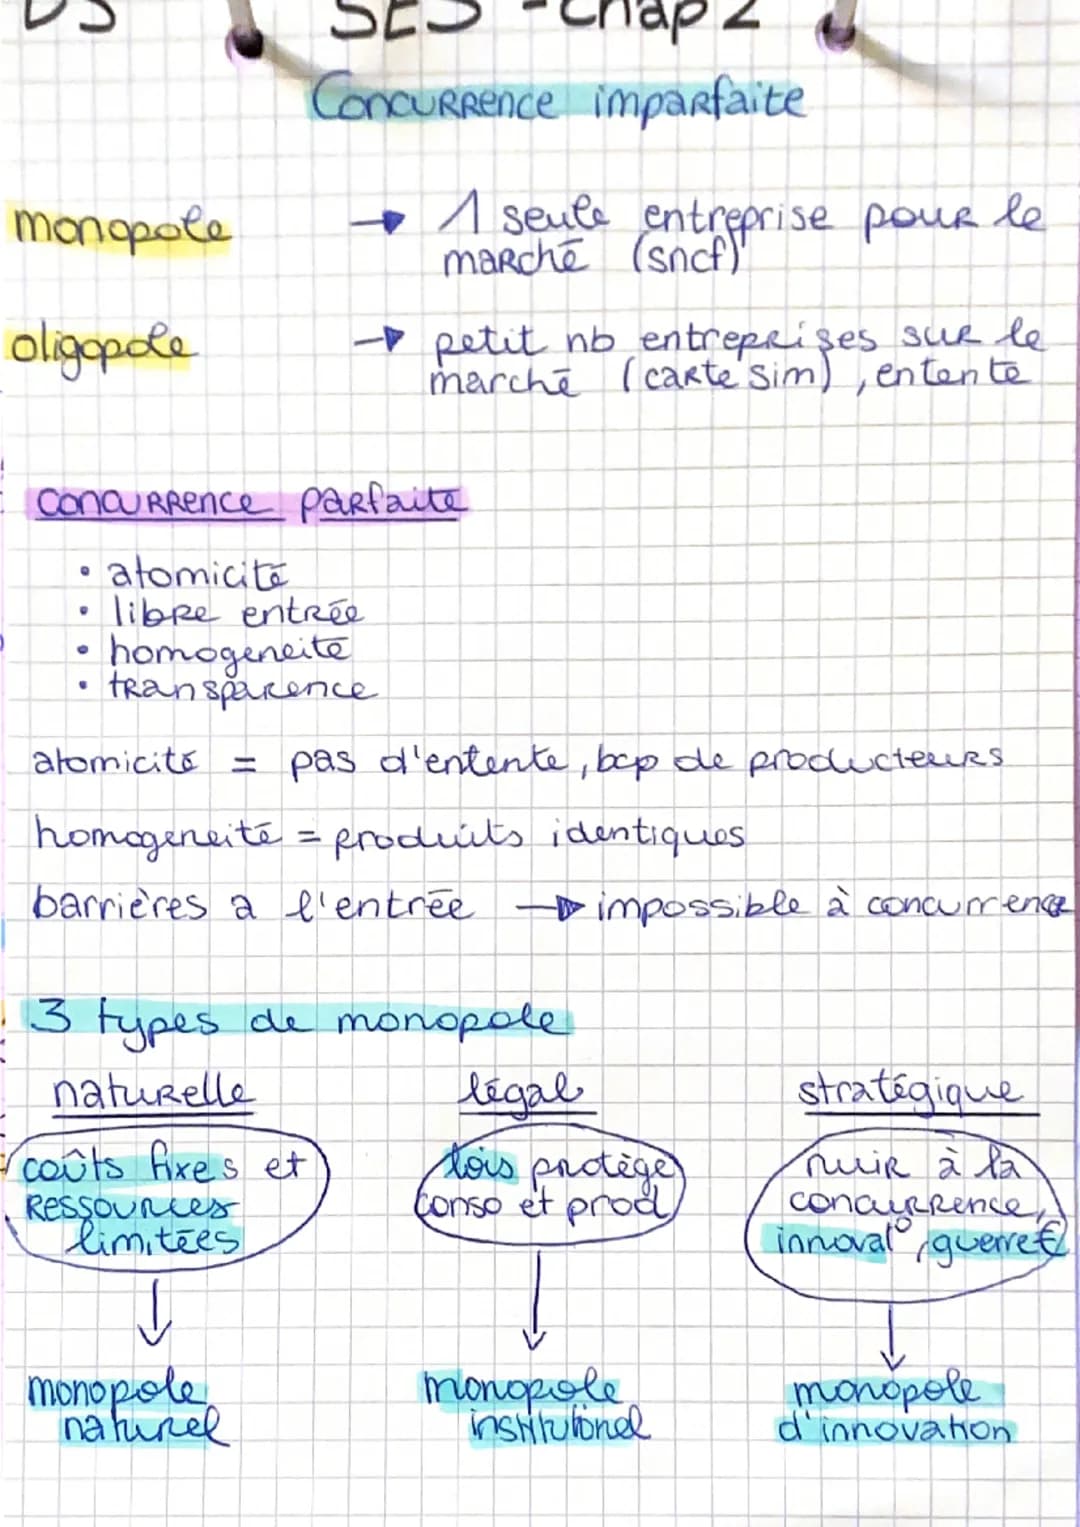 DS SES - Chap 2
Concurrence imparfaite
monopole → 1 seule entreprise pour le
marché (sncf)
oligopole → petit nb entreprises sur le
marché (carte sim), entente
concurrence parfaite
• atomicité
• libre entrée
• homogeneité
• transparence
atomicité = pas d'entente, bcp de producteurs
homogeneité = produits identiques
barrières a l'entrée → impossible à concurrence
3 types de monopole
naturelle légal stratégique
coûts fixes et
ressources
limitées
lois protège
conso et prod
nuir à la
concurrence,
innovat°, guerre €
↓ ↓ ↓
monopole
naturel
monopole
institutionel
monopole
d'innovation